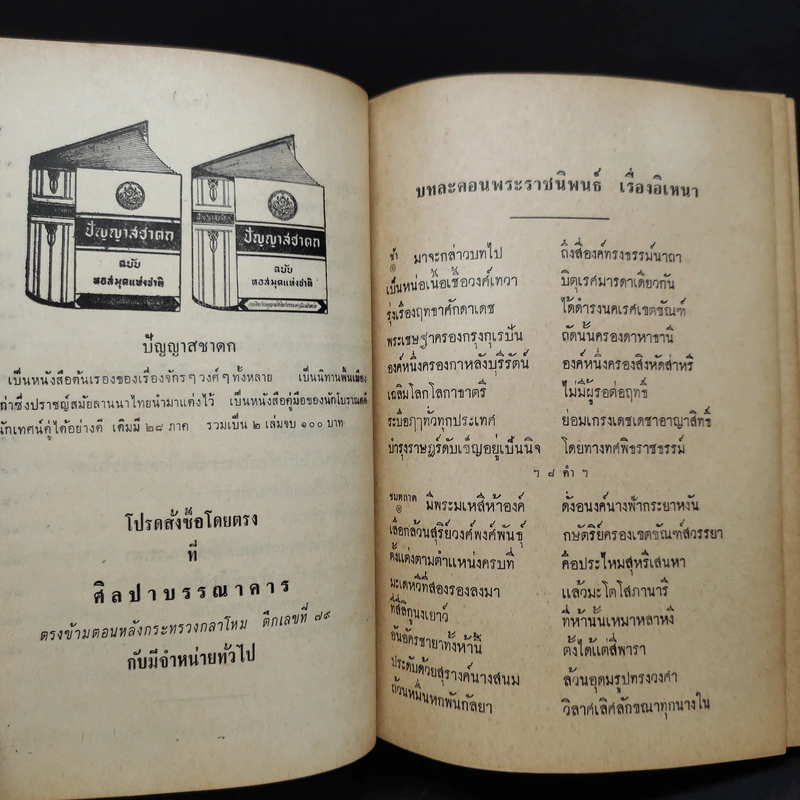 ปัญญาสชาดก
ฉบับ
หอสมุดแห่งชาติ
ปัญญาสชาดก
ปัญญาสชาดก
ฉบับ
หอสมุดแห่งชาติ
ปัญญาสชาดก
เป็นหนังสือต้นเรื่องของเรื่องจักร ๆ วงศ์ ๆ ทั้งหลาย เป็นนิทานพื้นเมือง
เก่าซึ่งปราชญ์สมัยลานนาไทยนำมาแต่งไว้ เป็นหนังสือคู่มือของนักโบราณคดี
นักเทศน์คู่ได้อย่างดี เดิมมี ๒๘ ภาค รวมเป็น ๒ เล่มจบ ๑๐๐ บาท
โปรดสั่งซื้อโดยตรง
ที่
ศิลปาบรรณาคาร
ตรงข้ามตอนหลังกระทรวงกลาโหม ตึกเลขที่ ๗๙
กับมีจำหน่ายทั่วไป
บทละคอนพระราชนิพนธ์ เรื่องอิเหนา
ช้า
๏ มาจะกล่าวบทไป ถึงสี่องค์ทรงธรรม์นาถา
เป็นหน่อเนื้อเชื้อวงศ์เทวา บิตุเรศมารดาเดียวกัน
รุ่งเรืองฤทธาศักดาเดช ได้ดำรงนคเรศเขตขัณฑ์
พระเชษฐาครองกรุงกุเรปัน ถัดนั้นครองดาหาธานี
องค์หนึ่งครองกาหลังบุรีรัตน์ องค์หนึ่งครองสิงหัดส่าหรี
เฉลิมโลกโลกาธาตรี ไม่มีผู้รอต่อฤทธิ์
ระบือฦๅทั่วทุกประเทศ ย่อมเกรงเดชเดชาอาญาสิทธิ์
บำรุงราษฎร์ดับเข็ญอยู่เป็นนิจ โดยทางทศพิธราชธรรม์
ฯ ๘ คำ ฯ
ชมตลาด
๏ มีพระมเหสีห้าองค์ ดั่งอนงค์นางฟ้ากระยาหงัน
เลือกล้วนสุริย์วงศ์พงศ์พันธุ์ กษัตริย์ครองเขตขัณฑ์สวรรยา
ตั้งแต่งตามตำแหน่งครบที่ คือประไหมสุหรีเสนหา
มะเดหวีที่สองรองลงมา แล้วมะโตโสภานารี
ที่สี่ลิกูนงเยาว์ ที่ห้านั้นเหมาหลาหงี
อันอัครชายาทั้งห้านี้ ตั้งได้แต่สี่พารา
ประดับด้วยสุรางค์นางสนม ล้วนอุดมรูปทรงวงศา
ถ้วนหมื่นหกพันกัลยา วิลาศเลิศลักขณาทุกนางใน